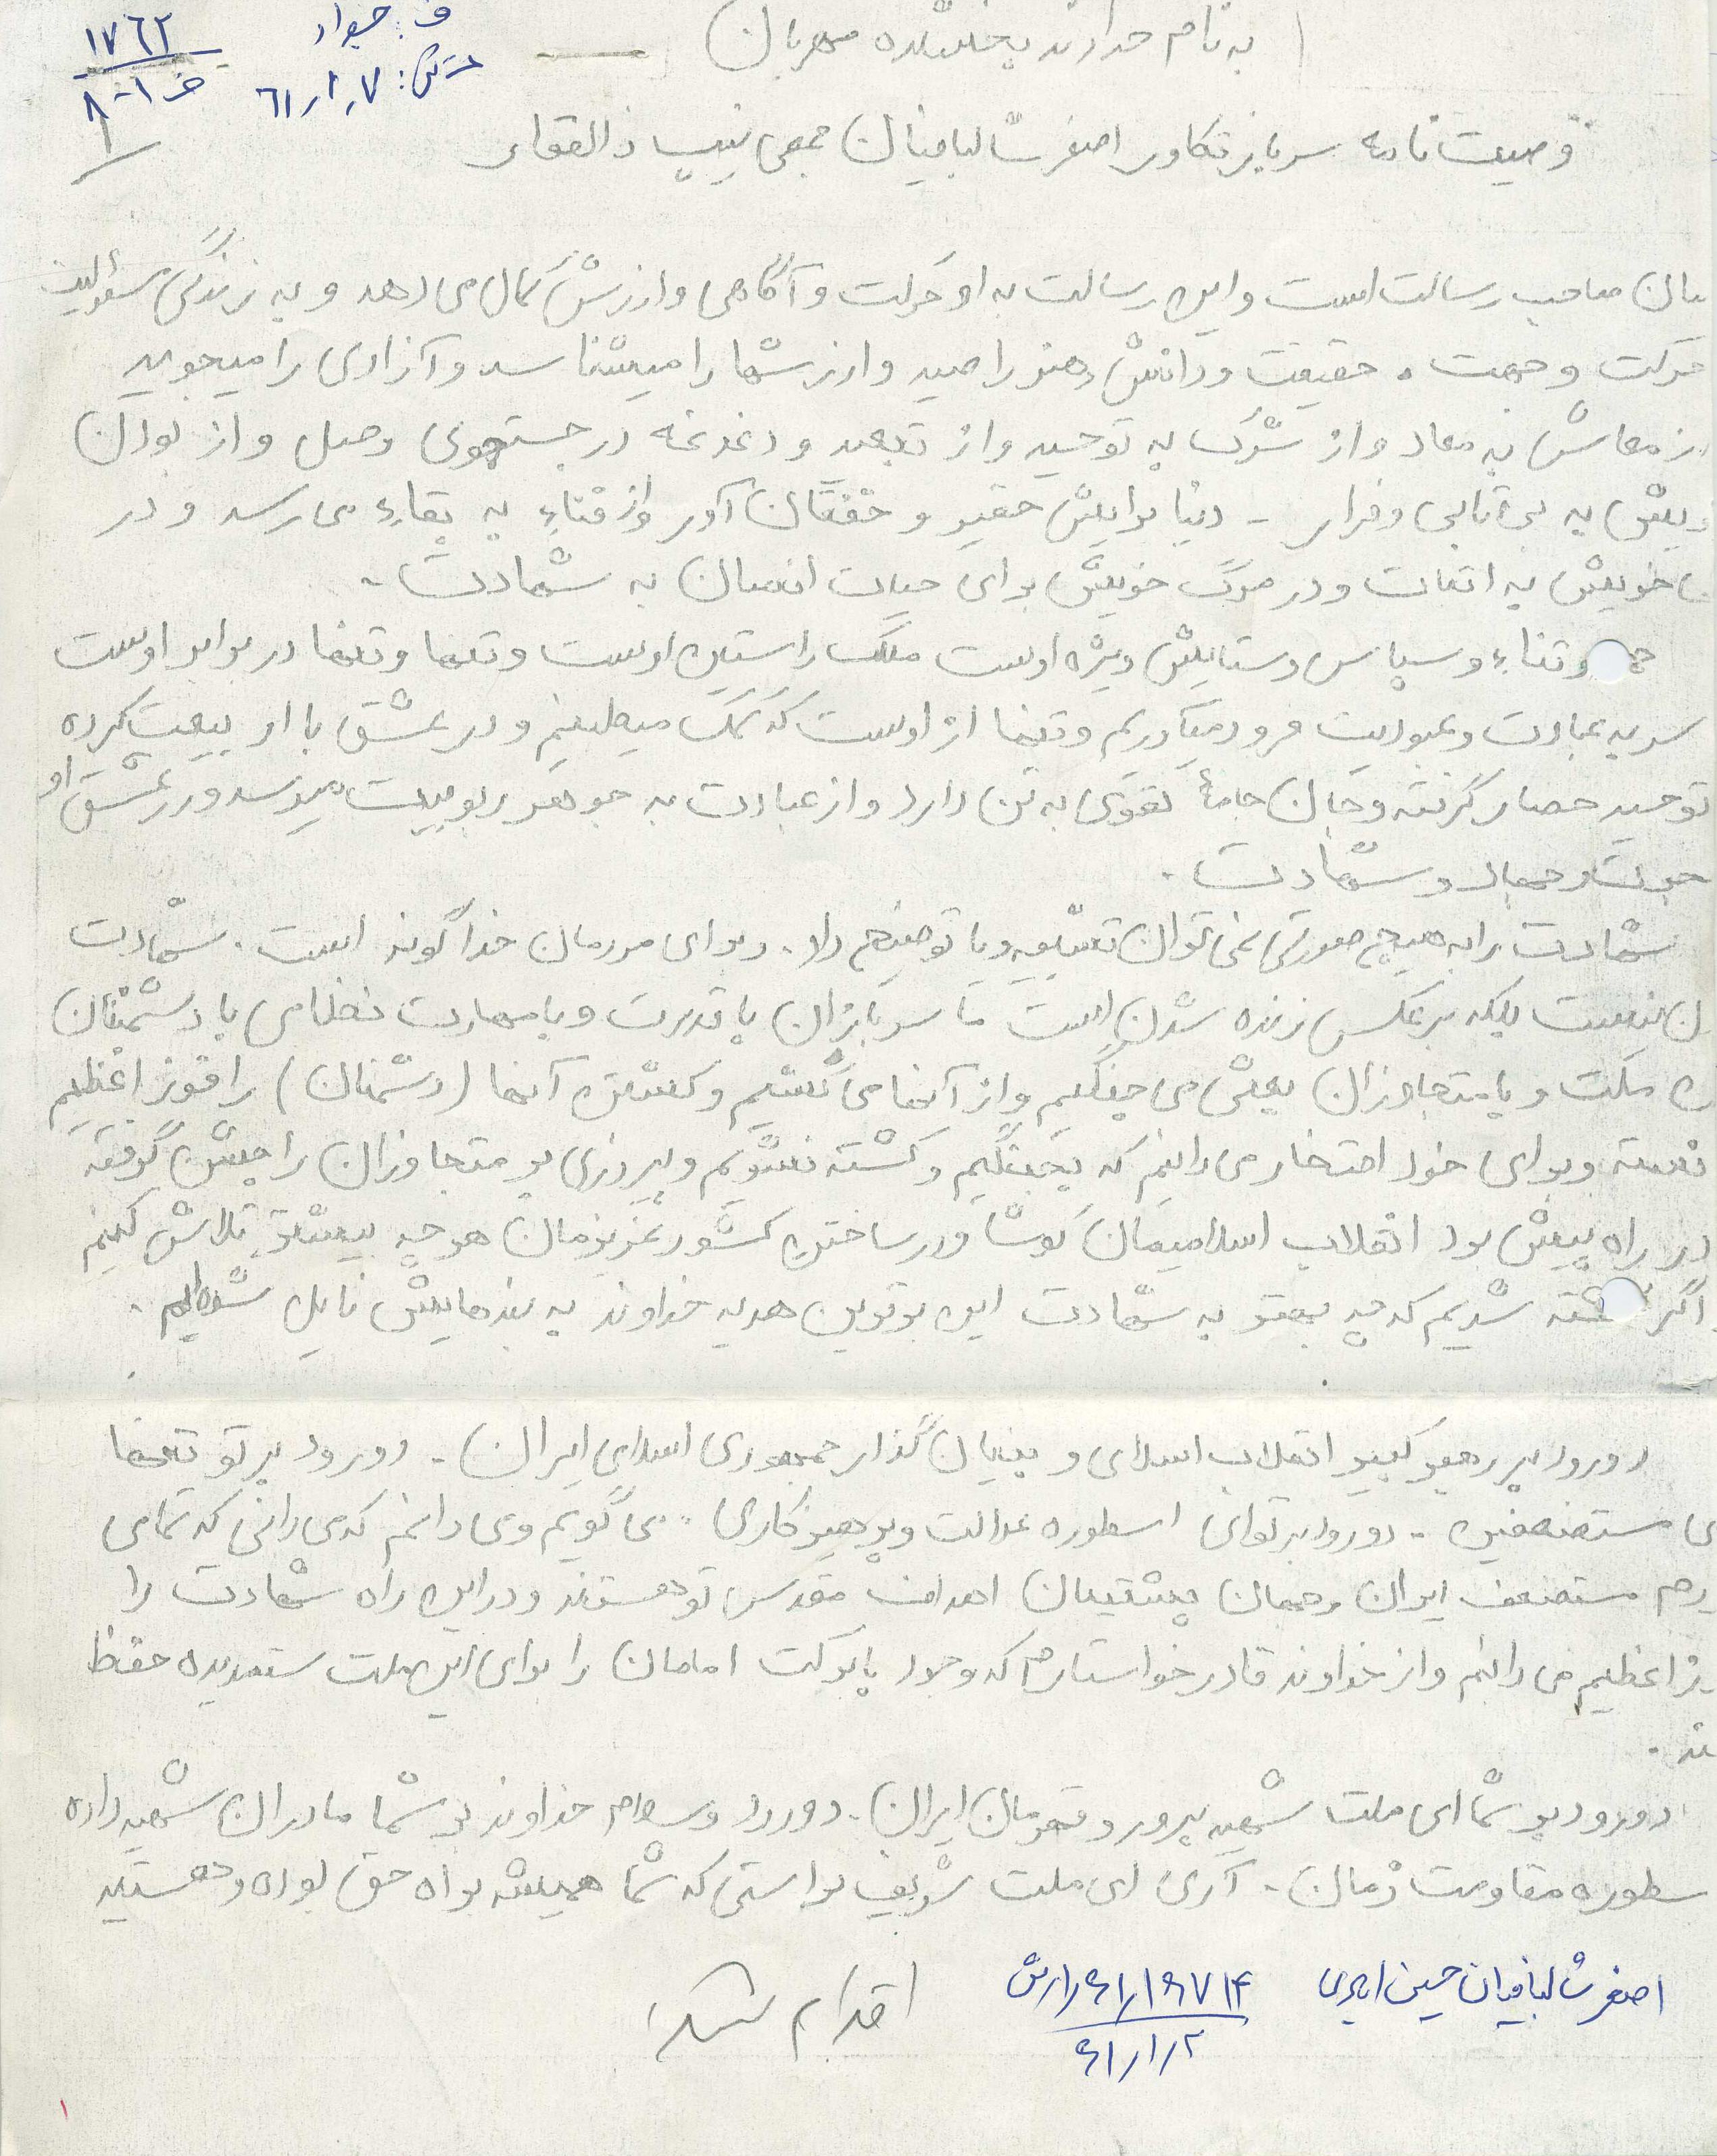 به نام خداوند بخشنده مهربان
ف. جواد
۱۷۶۲
۶۱/۱/۷
وصیت نامه سرباز تکاور اصغر شالبافیان جمعی تیپ ذالفقار
صاحب رسالت است و این رسالت به او حرکت و آگاهی و ارزش کمال می دهد و به زندگی مسئولیت
حرکت و جهت. حقیقت و دانش و هنر را صید و ارزشها را میشناسد و آزادی را میجوید
از معاش به معاد و از شرک به توحید و از تبعید و دغدغه در جستجوی وصل و از بودن
به بی تابی و فرار - دنیا برایش حقیر و خفقان آور و از فناء به بقاء می رسد و در
خویش به اثبات و در مرگ خویش برای حیات انسان به شهادت.
و ثناء و سپاس و ستایش ویژه اوست ملک راستین اوست و تنها و تنها در برابر اوست
سر به عبادت و عبودیت فرود میآوریم و تنها از اوست که کمک میطلبیم و در عشق با او بیعت کرده
توحید حصار گرفته و جان جامهٔ تقوی به تن دارد و از عبادت به جوهر ربوبیت میرسد و در عشق او
و جهاد و شهادت.
شهادت را به هیچ صورتی نمی توان تشبیه و یا توضیح داد. و برای مردمان خداگونه است. شهادت
نیست بلکه برعکس زنده شدن است ما سربازان با قدرت و با مهارت نظامی با دشمنان
ملت و با متجاوزان بعثی می جنگیم و از آنها می کشیم و کشتن آنها (دشمنان) را فوز اعظیم
و برای خود افتخار می دانیم که بجنگیم و کشته نشویم و پیروزی بر متجاوزان را جشن گرفته
در راه پیش برد انقلاب اسلامیمان کوشا و در ساختن کشور عزیزمان هر چه بیشتر تلاش کنیم
اگر کشته شدیم که چه بهتر به شهادت این برترین هدیه خداوند به بندهایش نایل شده ایم.
دورود بر رهبر کبیر انقلاب اسلامی و بنیان گذار جمهوری اسلامی ایران. دورود بر تو تنها
مستضعفین - دورود بر تو ای اسطوره عدالت و پرهیزکاری. می گویم و می دانم که می دانی که تمامی
مستضعف ایران و جهان پشتیبان اهداف مقدس تو هستند و در این راه شهادت را
اعظیم می دانم و از خداوند قادر خواستارم که وجود با برکت امامان را برای این ملت ستمدیده حفظ
دورود بر شما ای ملت شهید پرور و قهرمان ایران. دورود و سلام خداوند بر شما مادران شهید داده
مقاومت زمان. آری ای ملت شریف براستی که شما همیشه براه حق بوده و هستید
اصغر شالبافیان حسین
۶۱/۱/۲
اقدام شد
۱